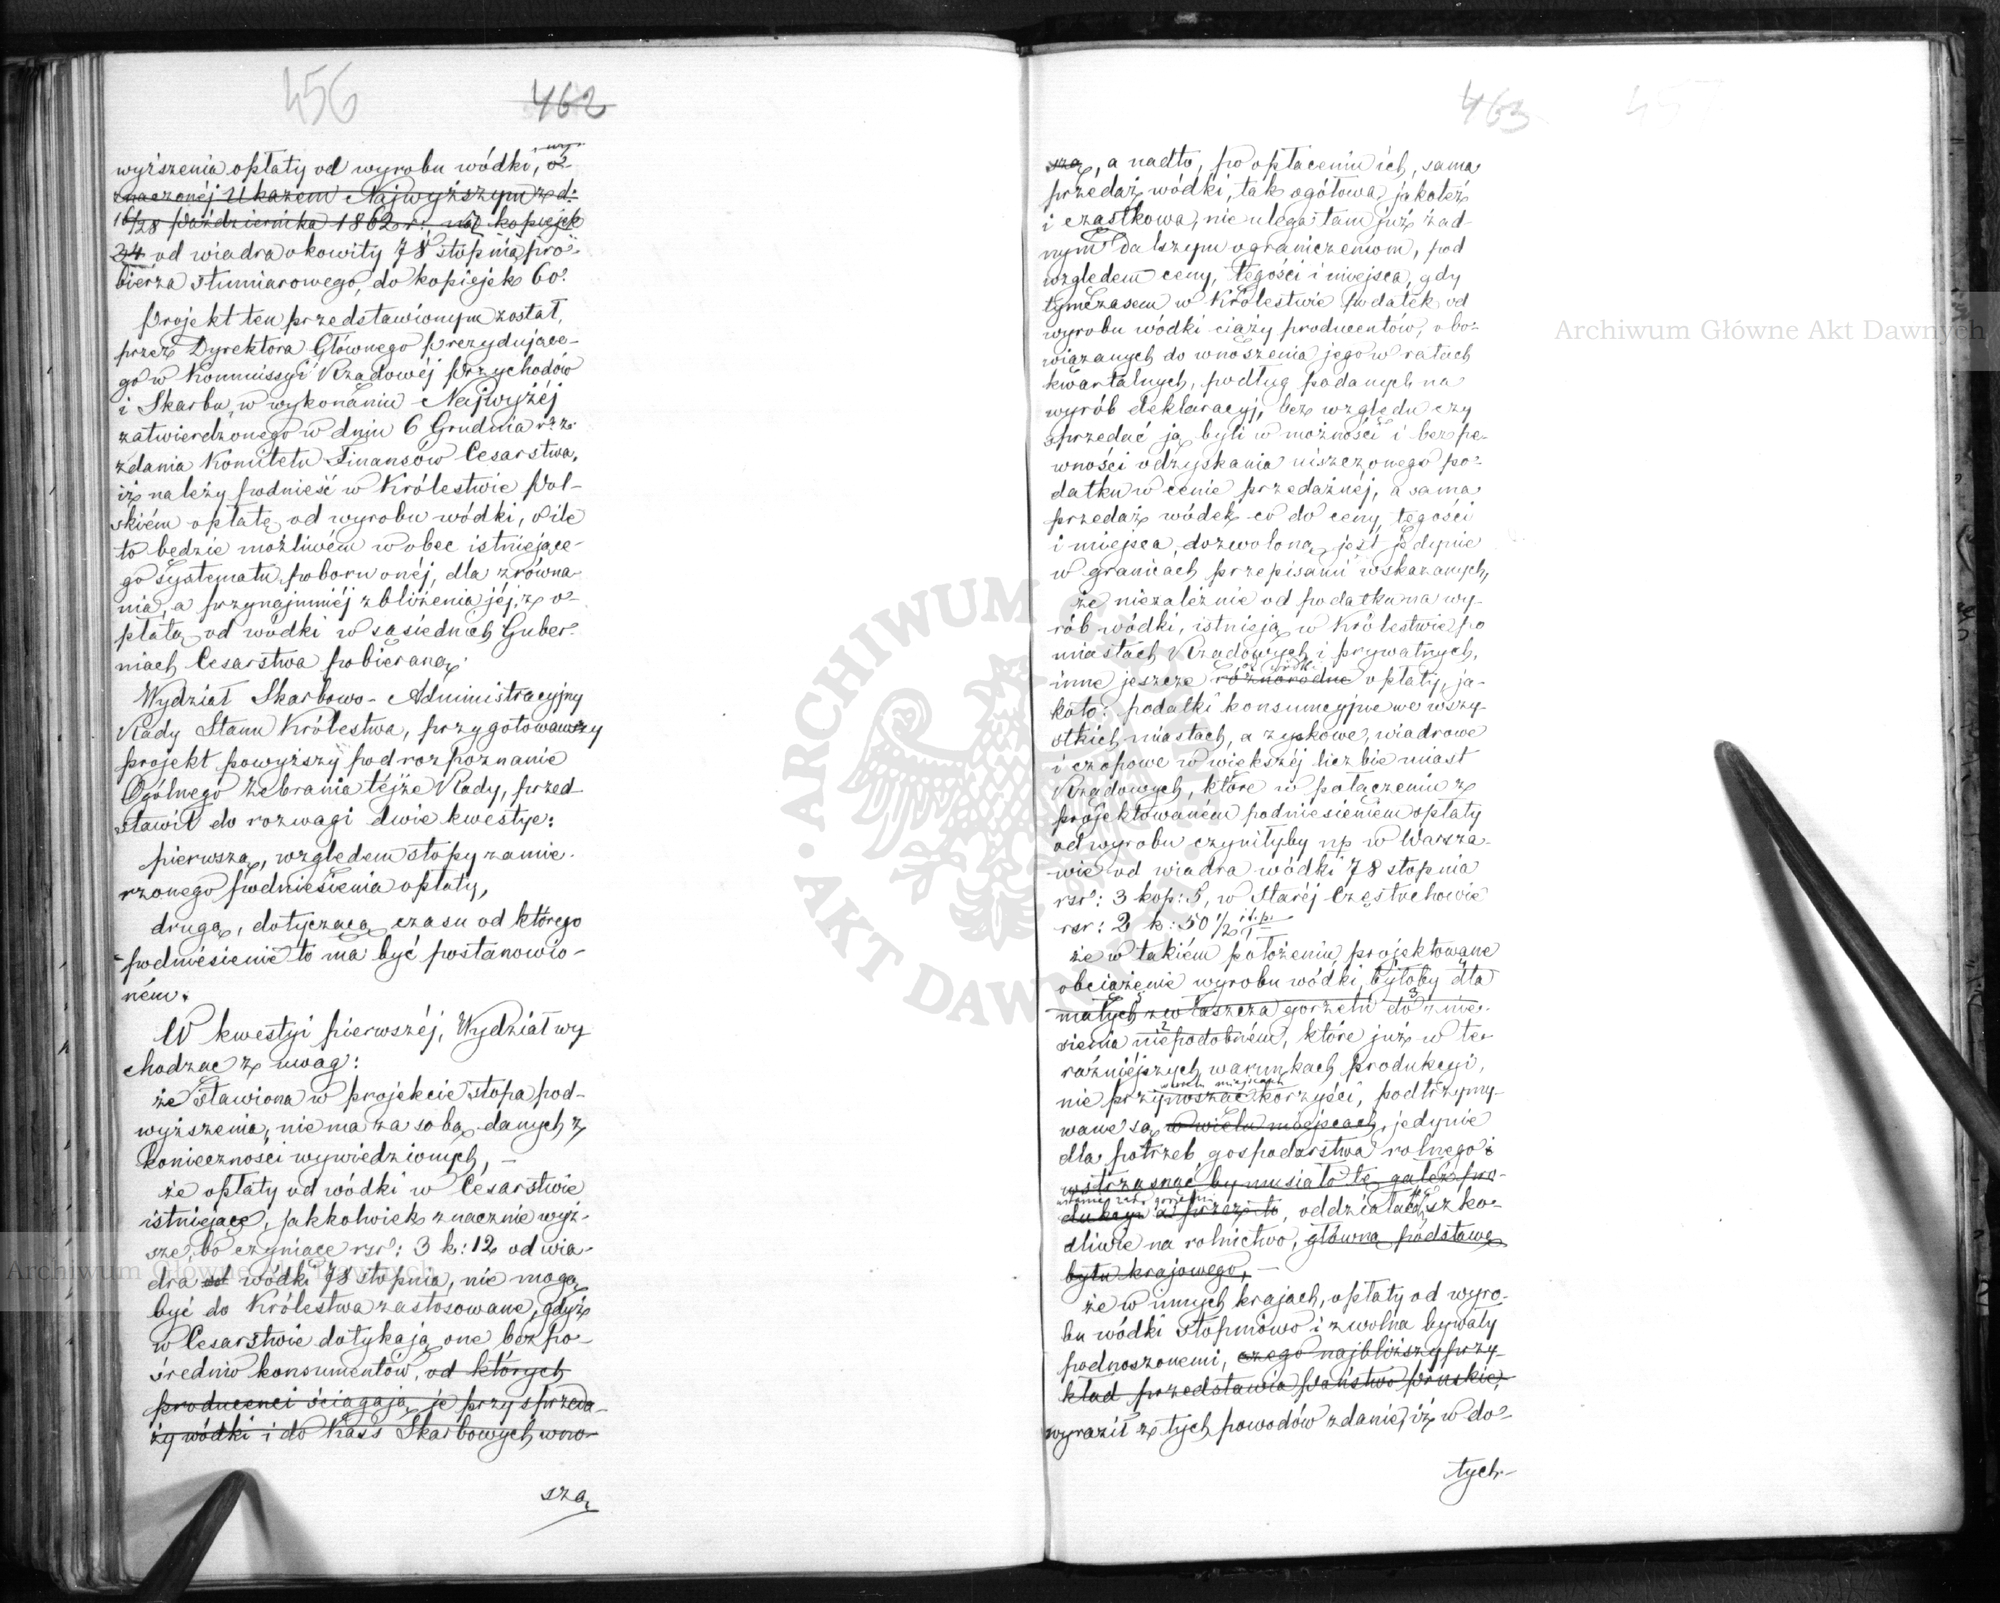 456
462
wyższenia opłaty od wyrobu wódki, o-
znaczonéj Ukazem Najwyższym z d:
16/28 Października 1862 r: na kopiejek
34 od wiadra okowity 78 stopnia pró-
bierza stumiarowego, do kopiejek 60.
Projekt ten przedstawionym został,
przez Dyrektora Głównego Prezydujące-
go w Kommissyi Rządowéj Przychodów
i Skarbu, w wykonaniu Najwyżéj
zatwierdzonego w dniu 6 Grudnia r: z:
zdania Komitetu Finansów Cesarstwa,
iż należy podnieść w Królestwie Pol-
skiém opłatę od wyrobu wódki, o ile
to będzie możliwém wobec istniejące-
go systematu poboru onéj, dla zrówna-
nia, a przynajmniéj zbliżenia jéj, z o-
płatą od wódki w sąsiednich Guber-
niach Cesarstwa pobieraną.
Wydział Skarbowo-Administracyjny
Rady Stanu Królestwa, przygotowawszy
projekt powyższy pod rozpoznanie
Ogólnego Zebrania téjże Rady, przed-
stawił do rozwagi dwie kwestye:
pierwszą, względem stopy zamie-
rzonego podniesienia opłaty,
drugą, dotyczącą czasu od którego
podniesienie to ma być postanowio-
ném.
W kwestyi pierwszéj, Wydział wy
chodząc z uwag:
że stawiona w projekcie stopa pod-
wyższenia, nie ma za sobą danych z
konieczności wywiedzionych, –
że opłaty od wódki w Cesarstwie
istniejące, jakkolwiek znacznie wyż-
sze, bo czyniące rsr: 3 k: 12 od wia-
dra od wódki 78 stopnia, nie mogą
być do Królestwa zastosowane, gdyż
w Cesarstwie dotykają one bezpo-
średnio konsumentów, od których
producenci ściągają je przy sprzeda-
ży wódki i do Kass Skarbowych wno-
szą
463
szą, a nadto, po opłaceniu ich, sama
przedaż wódki, tak ogółowa jakoteż
i cząstkowa, nie ulega tam już żad
nym dalszym ograniczeniom, pod
względem ceny, tęgości i miejsca, gdy
tymczasem w Królestwie podatek od
wyrobu wódki ciąży producentów, obo-
wiązanych do wnoszenia jego w ratach
kwartalnych, podług podanych na
wyrób deklaracyj, bez względu czy
sprzedać ją byli w możności i bez pe-
wności odzyskania uiszczonego po-
datku w cenie przedażnéj, a sama
przedaż wódek co do ceny, tęgości
i miejsca, dozwoloną jest jedynie
w granicach przepisami wskazanych,
że niezależnie od podatku na wy-
rób wódki, istnieją w Królestwie po
miastach Rządowych i prywatnych,
od wódki
inne jeszcze różnorodne opłaty, ja-
koto: podatki konsumcyjne we wszy-
stkich miastach, a zyskowe, wiadrowe
i czopowe w większéj liczbie miast
Rządowych, które w połączeniu z
projektowaném podniesieniem opłaty
od wyrobu czyniłyby np w Warsza-
wie od wiadra wódki 78 stopnia
rsr: 3 kop: 5, w Staréj Częstochowie
rsr: 2 k: 50 1/2 i t. p.
że w takiém położeniu projektowane
obciążenie wyrobu wódki, byłoby dla
małych zwłaszcza gorzelni do znie-
sienia niepodobném, które już w te-
raźniejszych warunkach produkcyi,
nie przynosząc korzyści, podtrzymy-
wane są w wielu miejscach, jedynie
dla potrzeb gospodarstwa rolnego i
wstrząsnąć by musiało tę gałęź pro-
dukcyi a przez to, oddziałać szko-
dliwie na rolnictwo, główną podstawę
bytu krajowego, –
że w innych krajach, opłaty od wyro-
bu wódki stopniowo i zwolna bywały
podnoszonemi, czego najbliższy przy-
kład przedstawia Państwo Pruskie,
wyraził z tych powodów zdanie, iż w do-
tych-
Archiwum Główne Akt Dawnych
Archiwum Główne Akt Dawnych
ARCHIWUM GŁÓWNE · AKT DAWNYCH ·